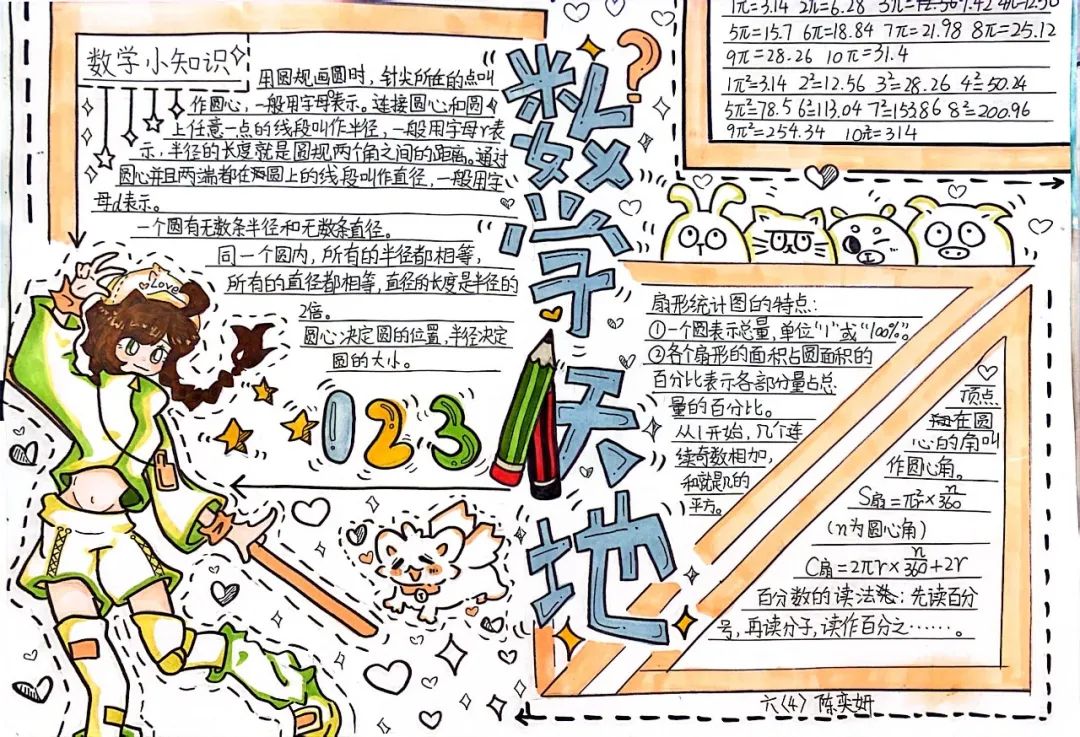 数学小知识
用圆规画圆时，针尖所在的点叫
作圆心，一般用字母o表示。连接圆心和圆
上任意一点的线段叫作半径，一般用字母r表
示，半径的长度就是圆规两个角之间的距离。通过
圆心并且两端都在圆上的线段叫作直径，一般用字
母d表示。
一个圆有无数条半径和无数条直径。
同一个圆内，所有的半径都相等，
所有的直径都相等，直径的长度是半径的
2倍。
圆心决定圆的位置，半径决定
圆的大小。
Love
123
数学天地
?
1π=3.14 2π=6.28 3π=9.42 4π=12.56
5π=15.7 6π=18.84 7π=21.98 8π=25.12
9π=28.26 10π=31.4
1π²=3.14 2²=12.56 3²=28.26 4²=50.24
5π²=78.5 6²=113.04 7²=153.86 8²=200.96
9π²=254.34 10π²=314
扇形统计图的特点：
①一个圆表示总量，单位"1"或"100%"。
②各个扇形的面积占圆面积的
百分比表示各部分量占总
量的百分比。
从1开始，几个连
续奇数相加，
和就是几的
平方。
顶点
在圆
心的角叫
作圆心角。
S扇=πr²×n/360
(n为圆心角)
C扇=2πr×n/360+2r
百分数的读法：先读百分
号，再读分子，读作百分之……。
六(4) 陈奕妍